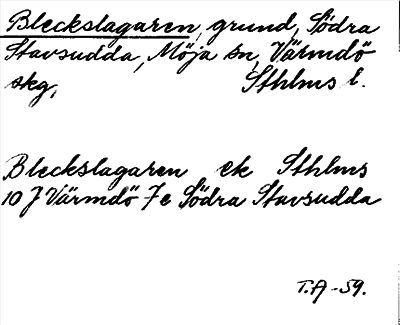 Bleckslagaren, grund, Södra
Stavsudda, Möja sn, Värmdö
skg, Sthlms l.
Bleckslagaren ek Sthlms
10 J Värmdö 7e Södra Stavsudda
T.A -59.